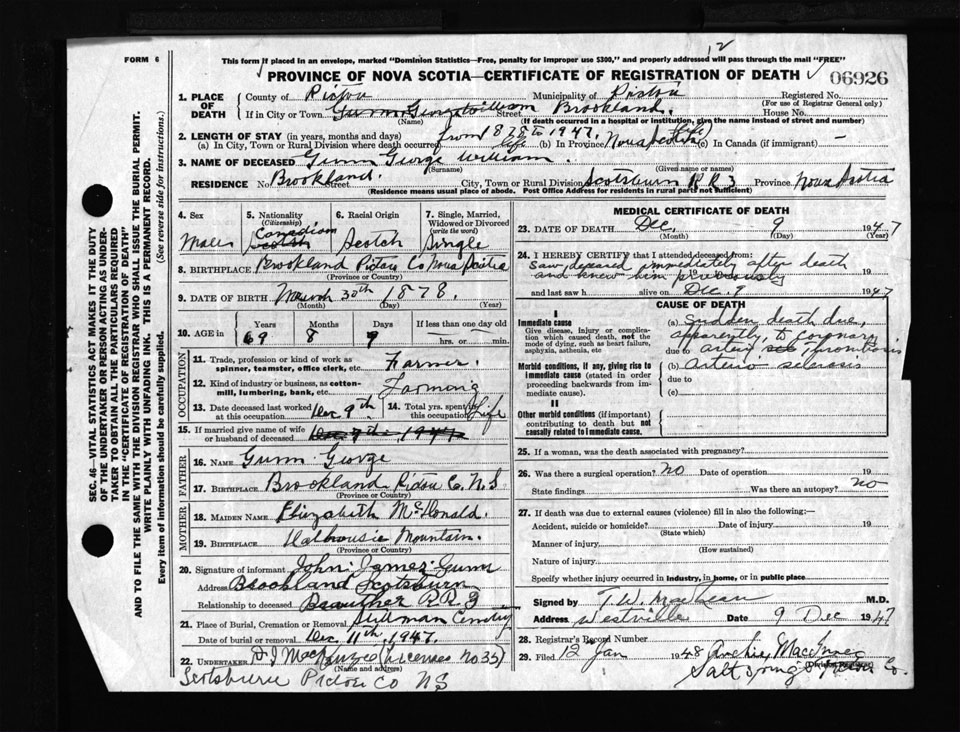 12
FORM 6
This form if placed in an envelope, marked "Dominion Statistics—Free, penalty for improper use $300," and properly addressed will pass through the mail "FREE"
PROVINCE OF NOVA SCOTIA—CERTIFICATE OF REGISTRATION OF DEATH
06926
SEC. 46—VITAL STATISTICS ACT MAKES IT THE DUTY
OF THE UNDERTAKER OR PERSON ACTING AS UNDER-
TAKER TO OBTAIN ALL THE PARTICULARS REQUIRED
IN THE "CERTIFICATE OF REGISTRATION OF DEATH"
AND TO FILE THE SAME WITH THE DIVISION REGISTRAR WHO SHALL ISSUE THE BURIAL PERMIT.
WRITE PLAINLY WITH UNFADING INK. THIS IS A PERMANENT RECORD.
Every item of information should be carefully supplied. (See reverse side for instructions.)
1. PLACE OF DEATH
County of Pictou Municipality of Pictou Registered No.
(For use of Registrar General only)
If in City or Town Gunn George William Street Brookland House No.
(Name) (If death occurred in a hospital or institution, give the name instead of street and number)
2. LENGTH OF STAY (in years, months and days) from 1878 to 1947 (life)
(a) In City, Town or Rural Division where death occurred life (b) In Province Nova Scotia (c) In Canada (if immigrant) —
3. NAME OF DECEASED Gunn George William.
(Surname) (Given name or names)
RESIDENCE No. Brookland. Street City, Town or Rural Division Scotsburn R R 3 Province Nova Scotia
(Residence means usual place of abode. Post Office Address for residents in rural parts not sufficient)
4. Sex
Male
5. Nationality
(Citizenship)
Canadian
Scotch
6. Racial Origin
Scotch
7. Single, Married,
Widowed or Divorced
(write the word)
Single
8. BIRTHPLACE Brookland Pictou Co Nova Scotia
(Province or Country)
9. DATE OF BIRTH March 30th 1878.
(Month) (Day) (Year)
10. AGE in
Years Months Days If less than one day old
69 8 9 hrs. or min.
OCCUPATION
11. Trade, profession or kind of work as
spinner, teamster, office clerk, etc. Farmer.
12. Kind of industry or business, as cotton-
mill, lumbering, bank, etc. Farming
13. Date deceased last worked
at this occupation Dec 9th
14. Total yrs. spent in
this occupation Life
15. If married give name of wife
or husband of deceased Dec 9th 1947
FATHER
16. NAME Gunn George
17. BIRTHPLACE Brookland Pictou Co. N.S.
(Province or Country)
MOTHER
18. MAIDEN NAME Elizabeth McDonald.
19. BIRTHPLACE Dalhousie Mountain.
(Province or Country)
20. Signature of informant John James Gunn
Address Brookland Scotsburn
Relationship to deceased Brother R R 3
21. Place of Burial, Cremation or Removal Stillman Cemetery
Date of burial or removal Dec 11th, 1947.
22. UNDERTAKER D J MacKenzie (License No 35)
(Name and address)
Scotsburn Pictou Co NS
MEDICAL CERTIFICATE OF DEATH
23. DATE OF DEATH Dec. 9 1947
(Month) (Day) (Year)
24. I HEREBY CERTIFY that I attended deceased from:
Saw deceased immediately after death
and knew him previously 19
and last saw h alive on Dec. 9 1947
CAUSE OF DEATH
I
Immediate cause
Give disease, injury or complication
which caused death, not the
mode of dying, such as heart failure,
asphyxia, asthenia, etc
(a) Sudden death due,
apparently, to coronary
due to artery thrombosis
Morbid conditions, if any, giving rise to
immediate cause (stated in order
proceeding backwards from immediate
cause).
(b) Arterio sclerosis
due to
(c)
II
Other morbid conditions (if important)
contributing to death but not
causally related to immediate cause.
25. If a woman, was the death associated with pregnancy?
26. Was there a surgical operation? No Date of operation 19
State findings Was there an autopsy? no
27. If death was due to external causes (violence) fill in also the following:—
Accident, suicide or homicide? Date of injury 19
(State which)
Manner of injury
(How sustained)
Nature of injury
Specify whether injury occurred in industry, in home, or in public place
Signed by T. W. MacLean M.D.
Address Westville Date 9 Dec 1947
28. Registrar's Record Number
29. Filed 12 Jan 1948 Archie MacInnes
(Division Registrar)
Salt Springs Pictou Co.